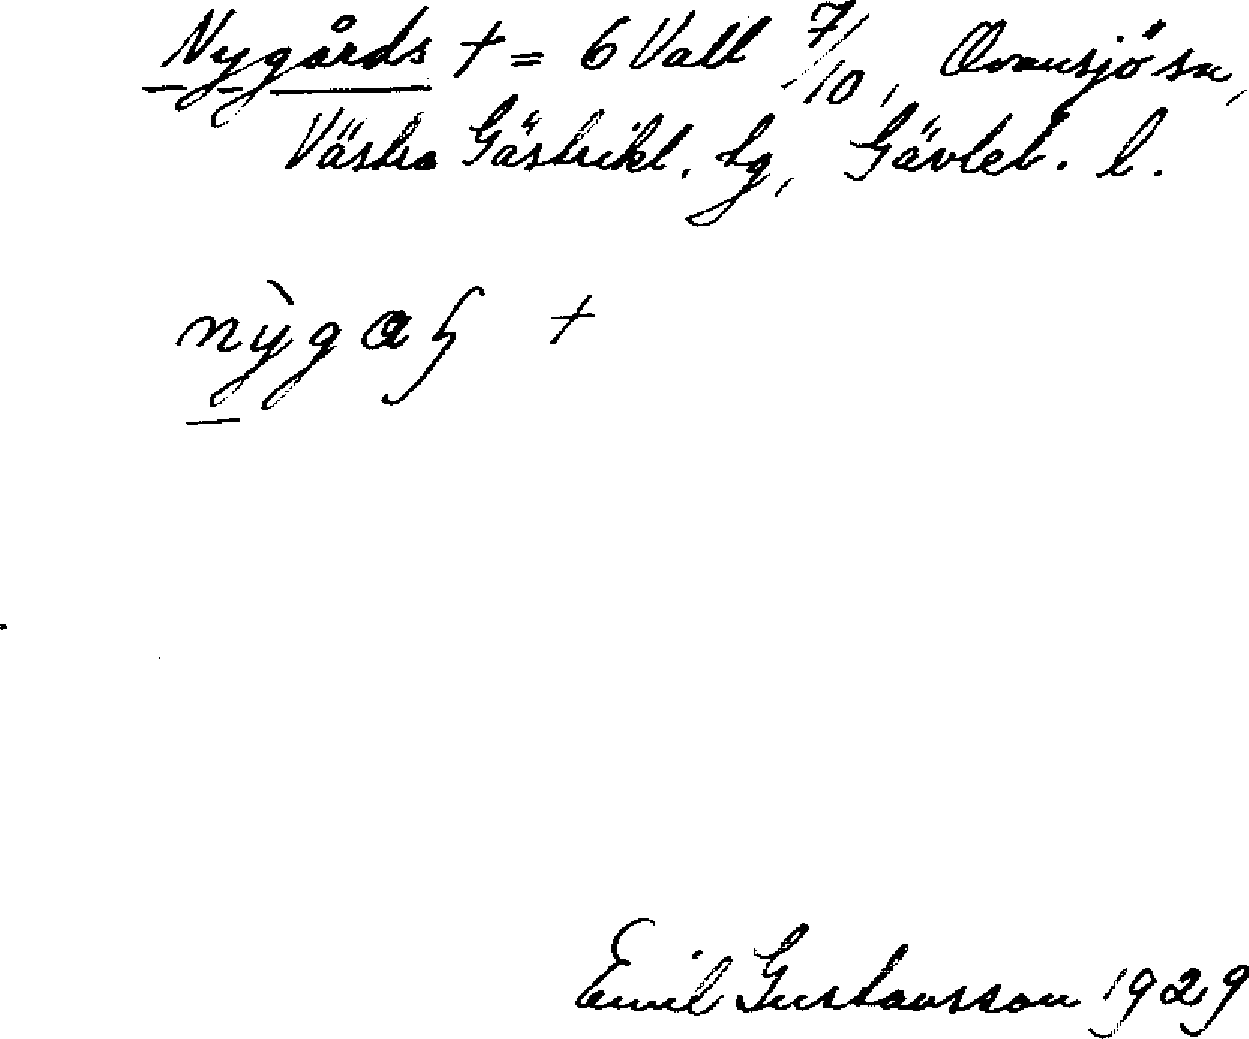 Nygårds + = 6 Vall 7/10, Ovansjö sn,
Västra Gästrikl. tg, Gävleb. l.
nỳgaꞩ +
Emil Gustavsson 1929